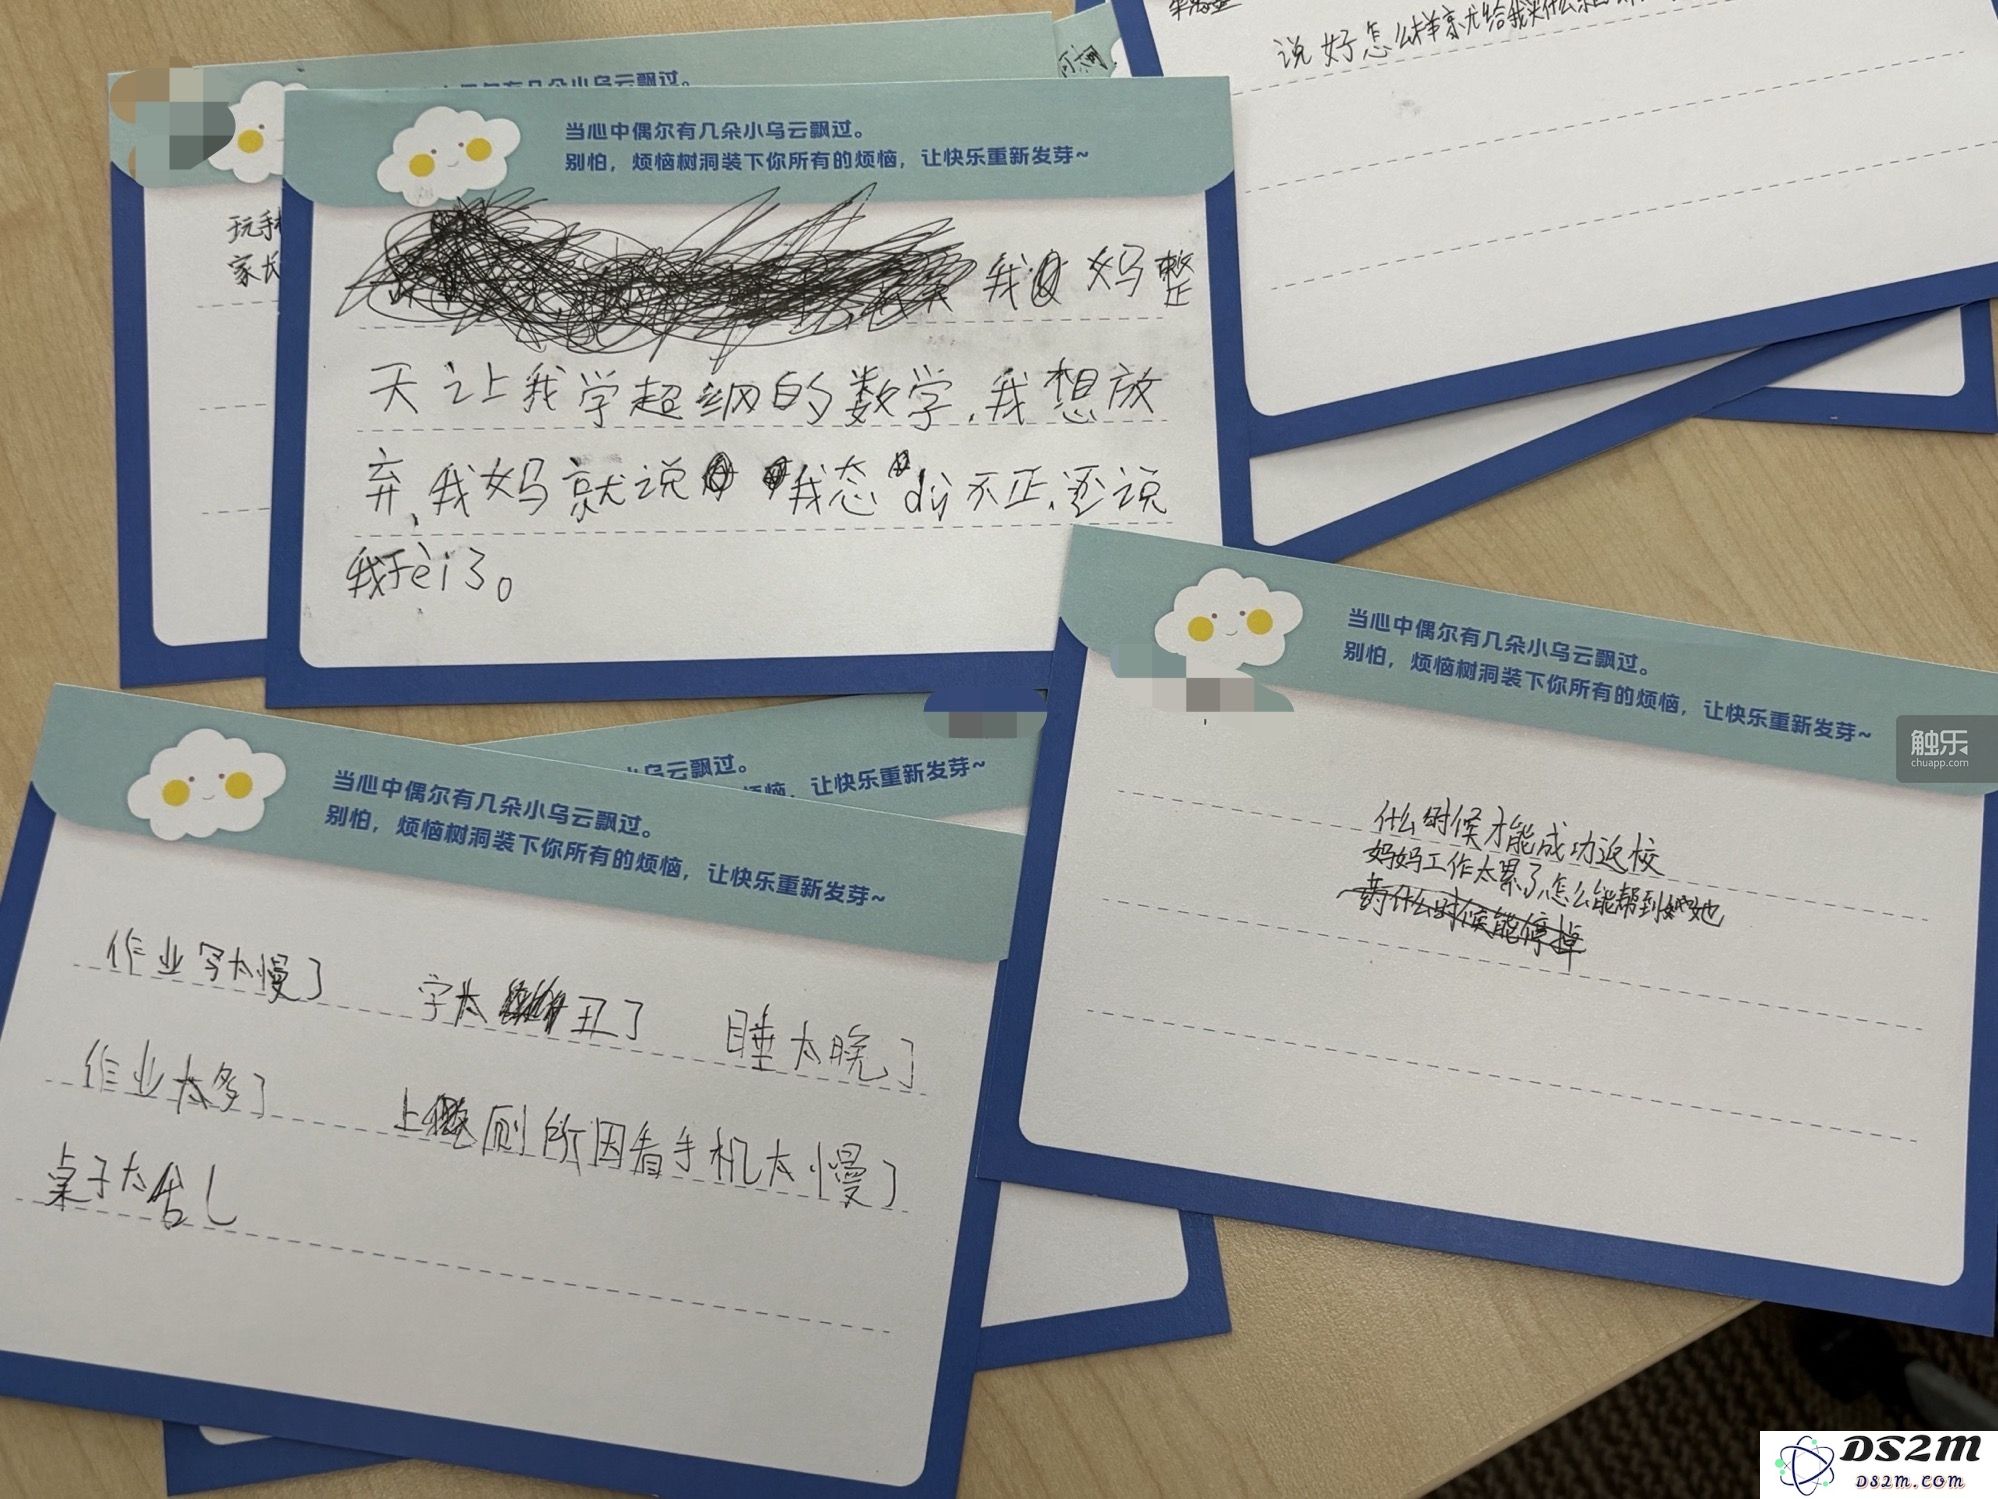 说好怎么样
当心中偶尔有几朵小乌云飘过。
当心中偶尔有几朵小乌云飘过。
别怕，烦恼树洞装下你所有的烦恼，让快乐重新发芽~
玩手
家长
我妈整
天让我学超级的数学，我想放
弃，我妈就说我态dù不正，还说
我fèi了。
当心中偶尔有几朵小乌云飘过。
别怕，烦恼树洞装下你所有的烦恼，让快乐重新发芽~
什么时候才能成功返校
妈妈工作太累了，怎么能帮到她
什么时候能停掉
小乌云飘过。
烦恼，让快乐重新发芽~
当心中偶尔有几朵小乌云飘过。
别怕，烦恼树洞装下你所有的烦恼，让快乐重新发芽~
作业写太慢了 字太丑了 睡太晚了
作业太多了 上厕所因看手机太慢了
桌子太乱
触乐
chuapp.com
DS2M
DS2M.COM